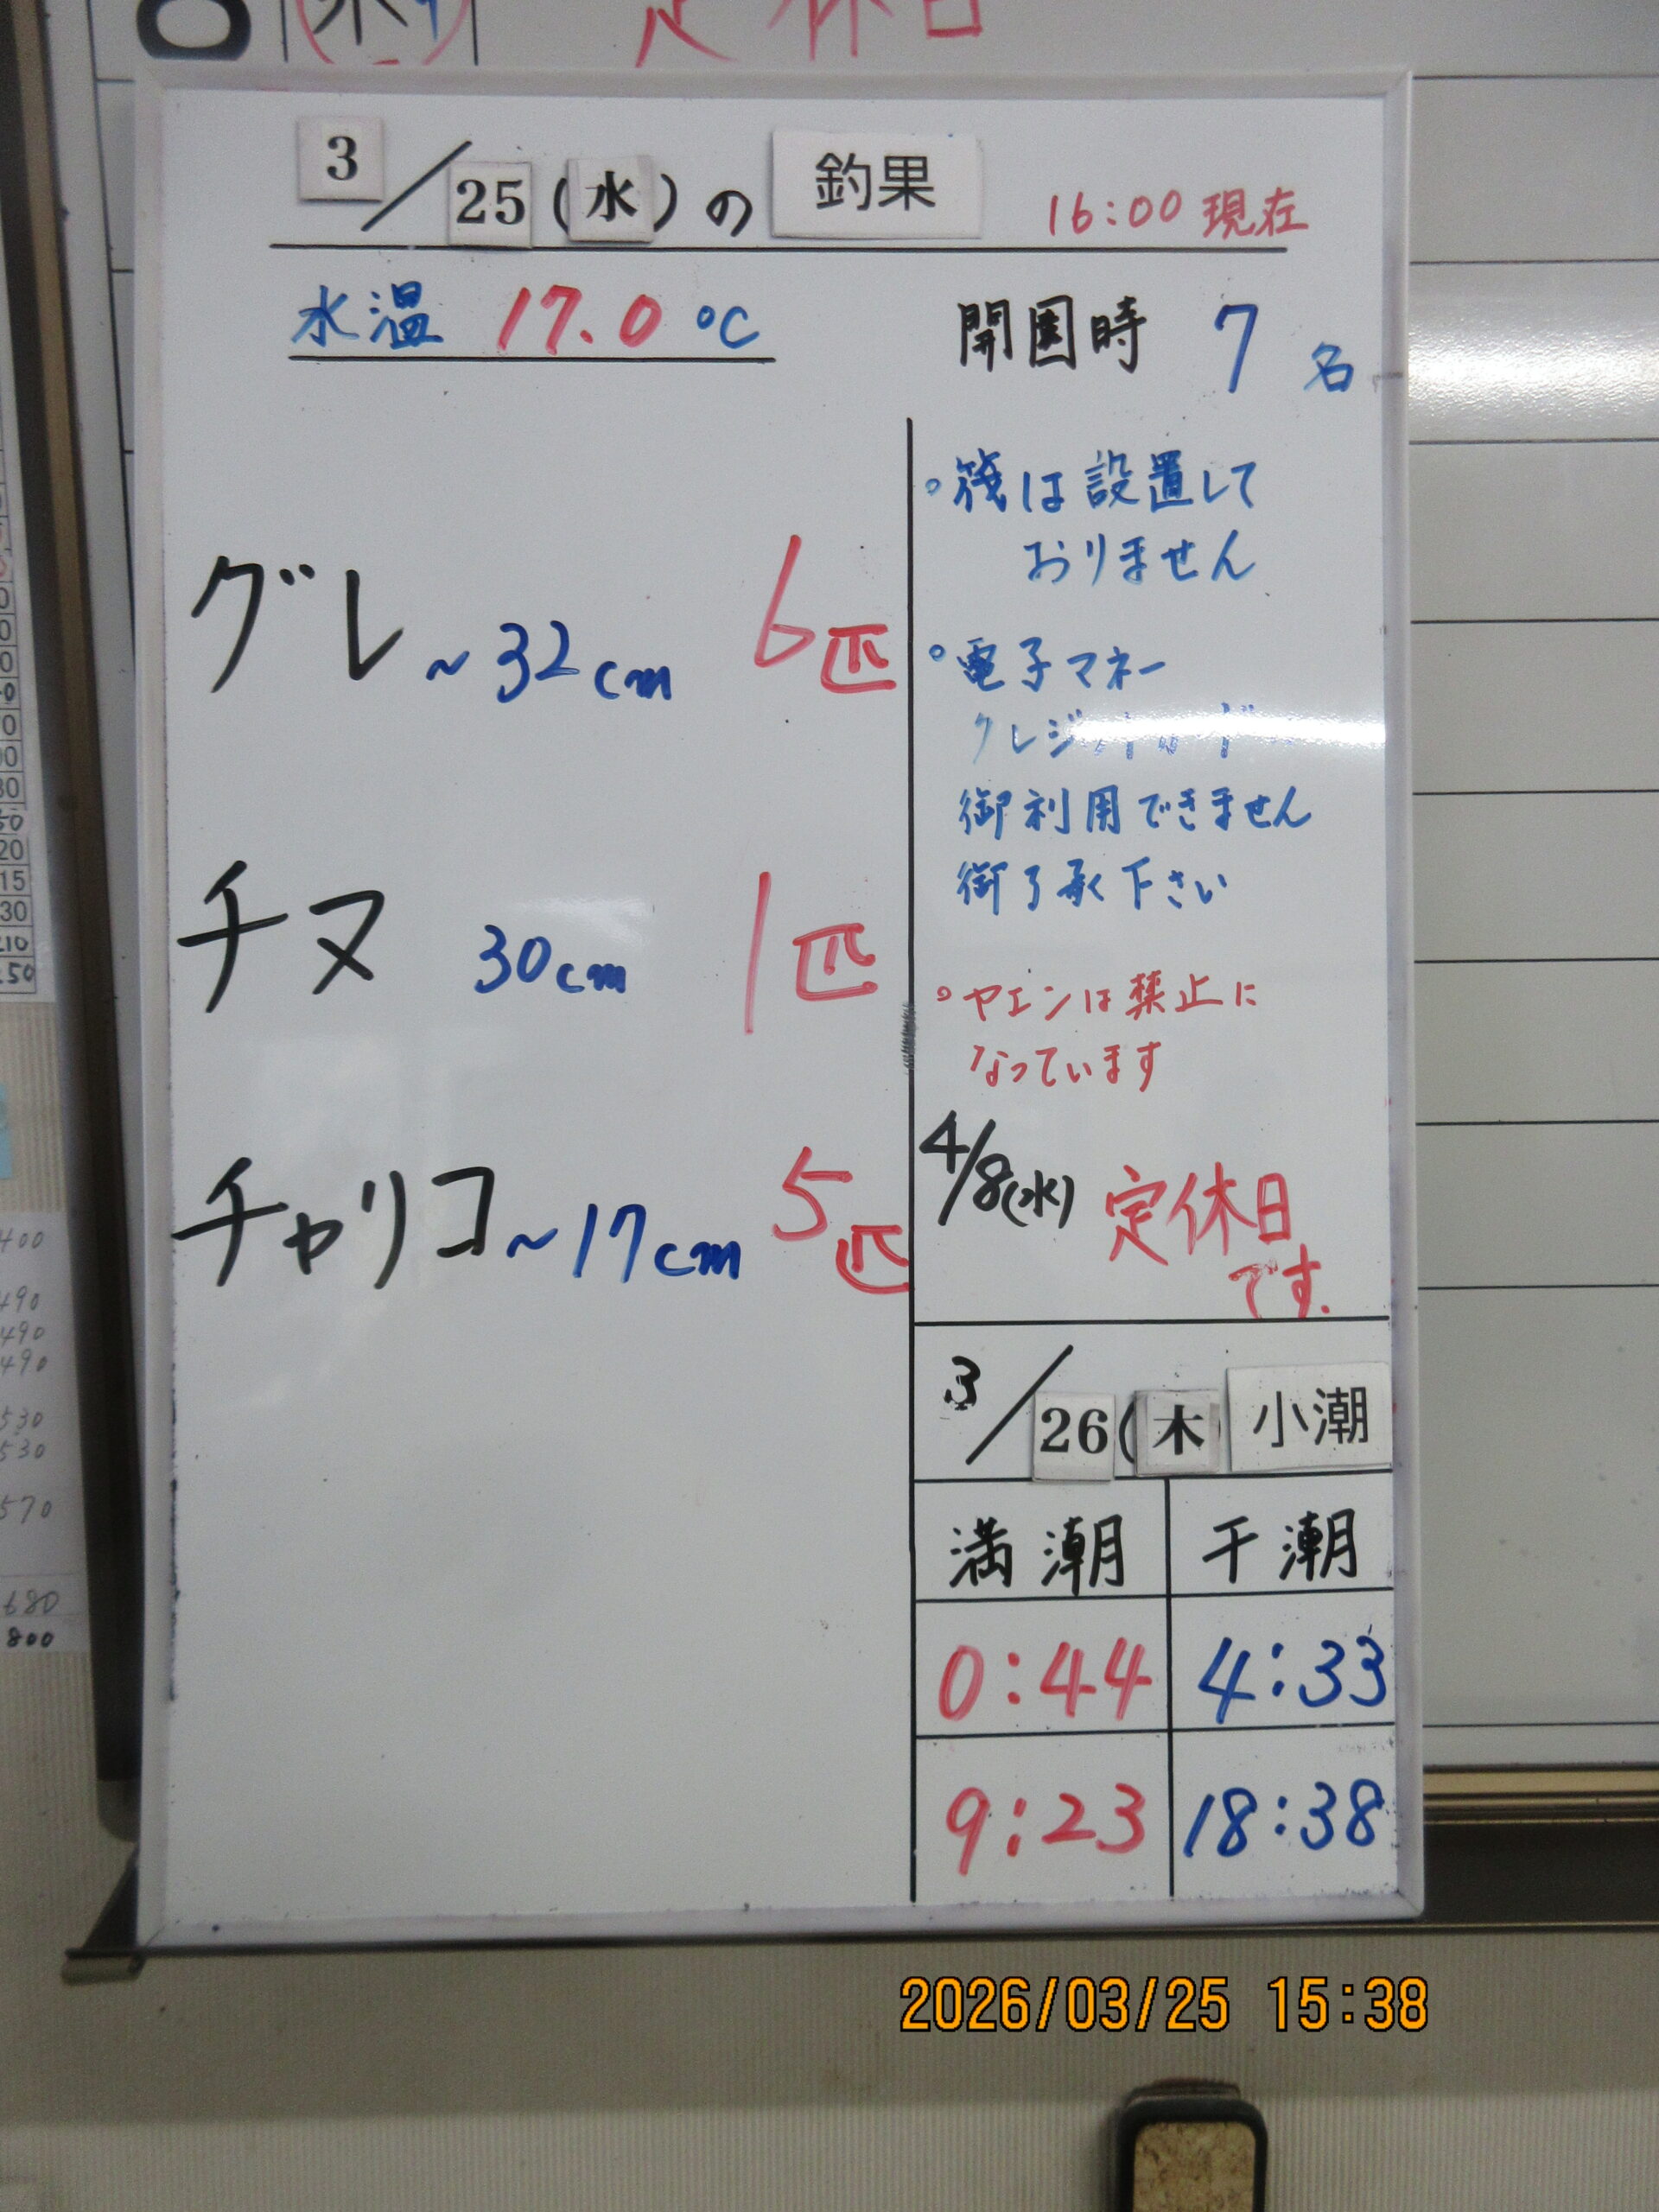 定休日
3/25(水)の 釣果 16:00 現在
水温 17.0 ℃
開園時 7 名
グレ ~32cm 6匹
チヌ 30cm 1匹
チャリコ ~17cm 5匹
。筏は設置して
おりません
。電子マネー
クレジットカード
御利用できません
御了承下さい
。ヤエンは禁止に
なっています
4/8(水) 定休日
です.
3/26(木 小潮
満潮 干潮
0:44 4:33
9:23 18:38
400
490
490
490
530
530
570
680
800
2026/03/25 15:38